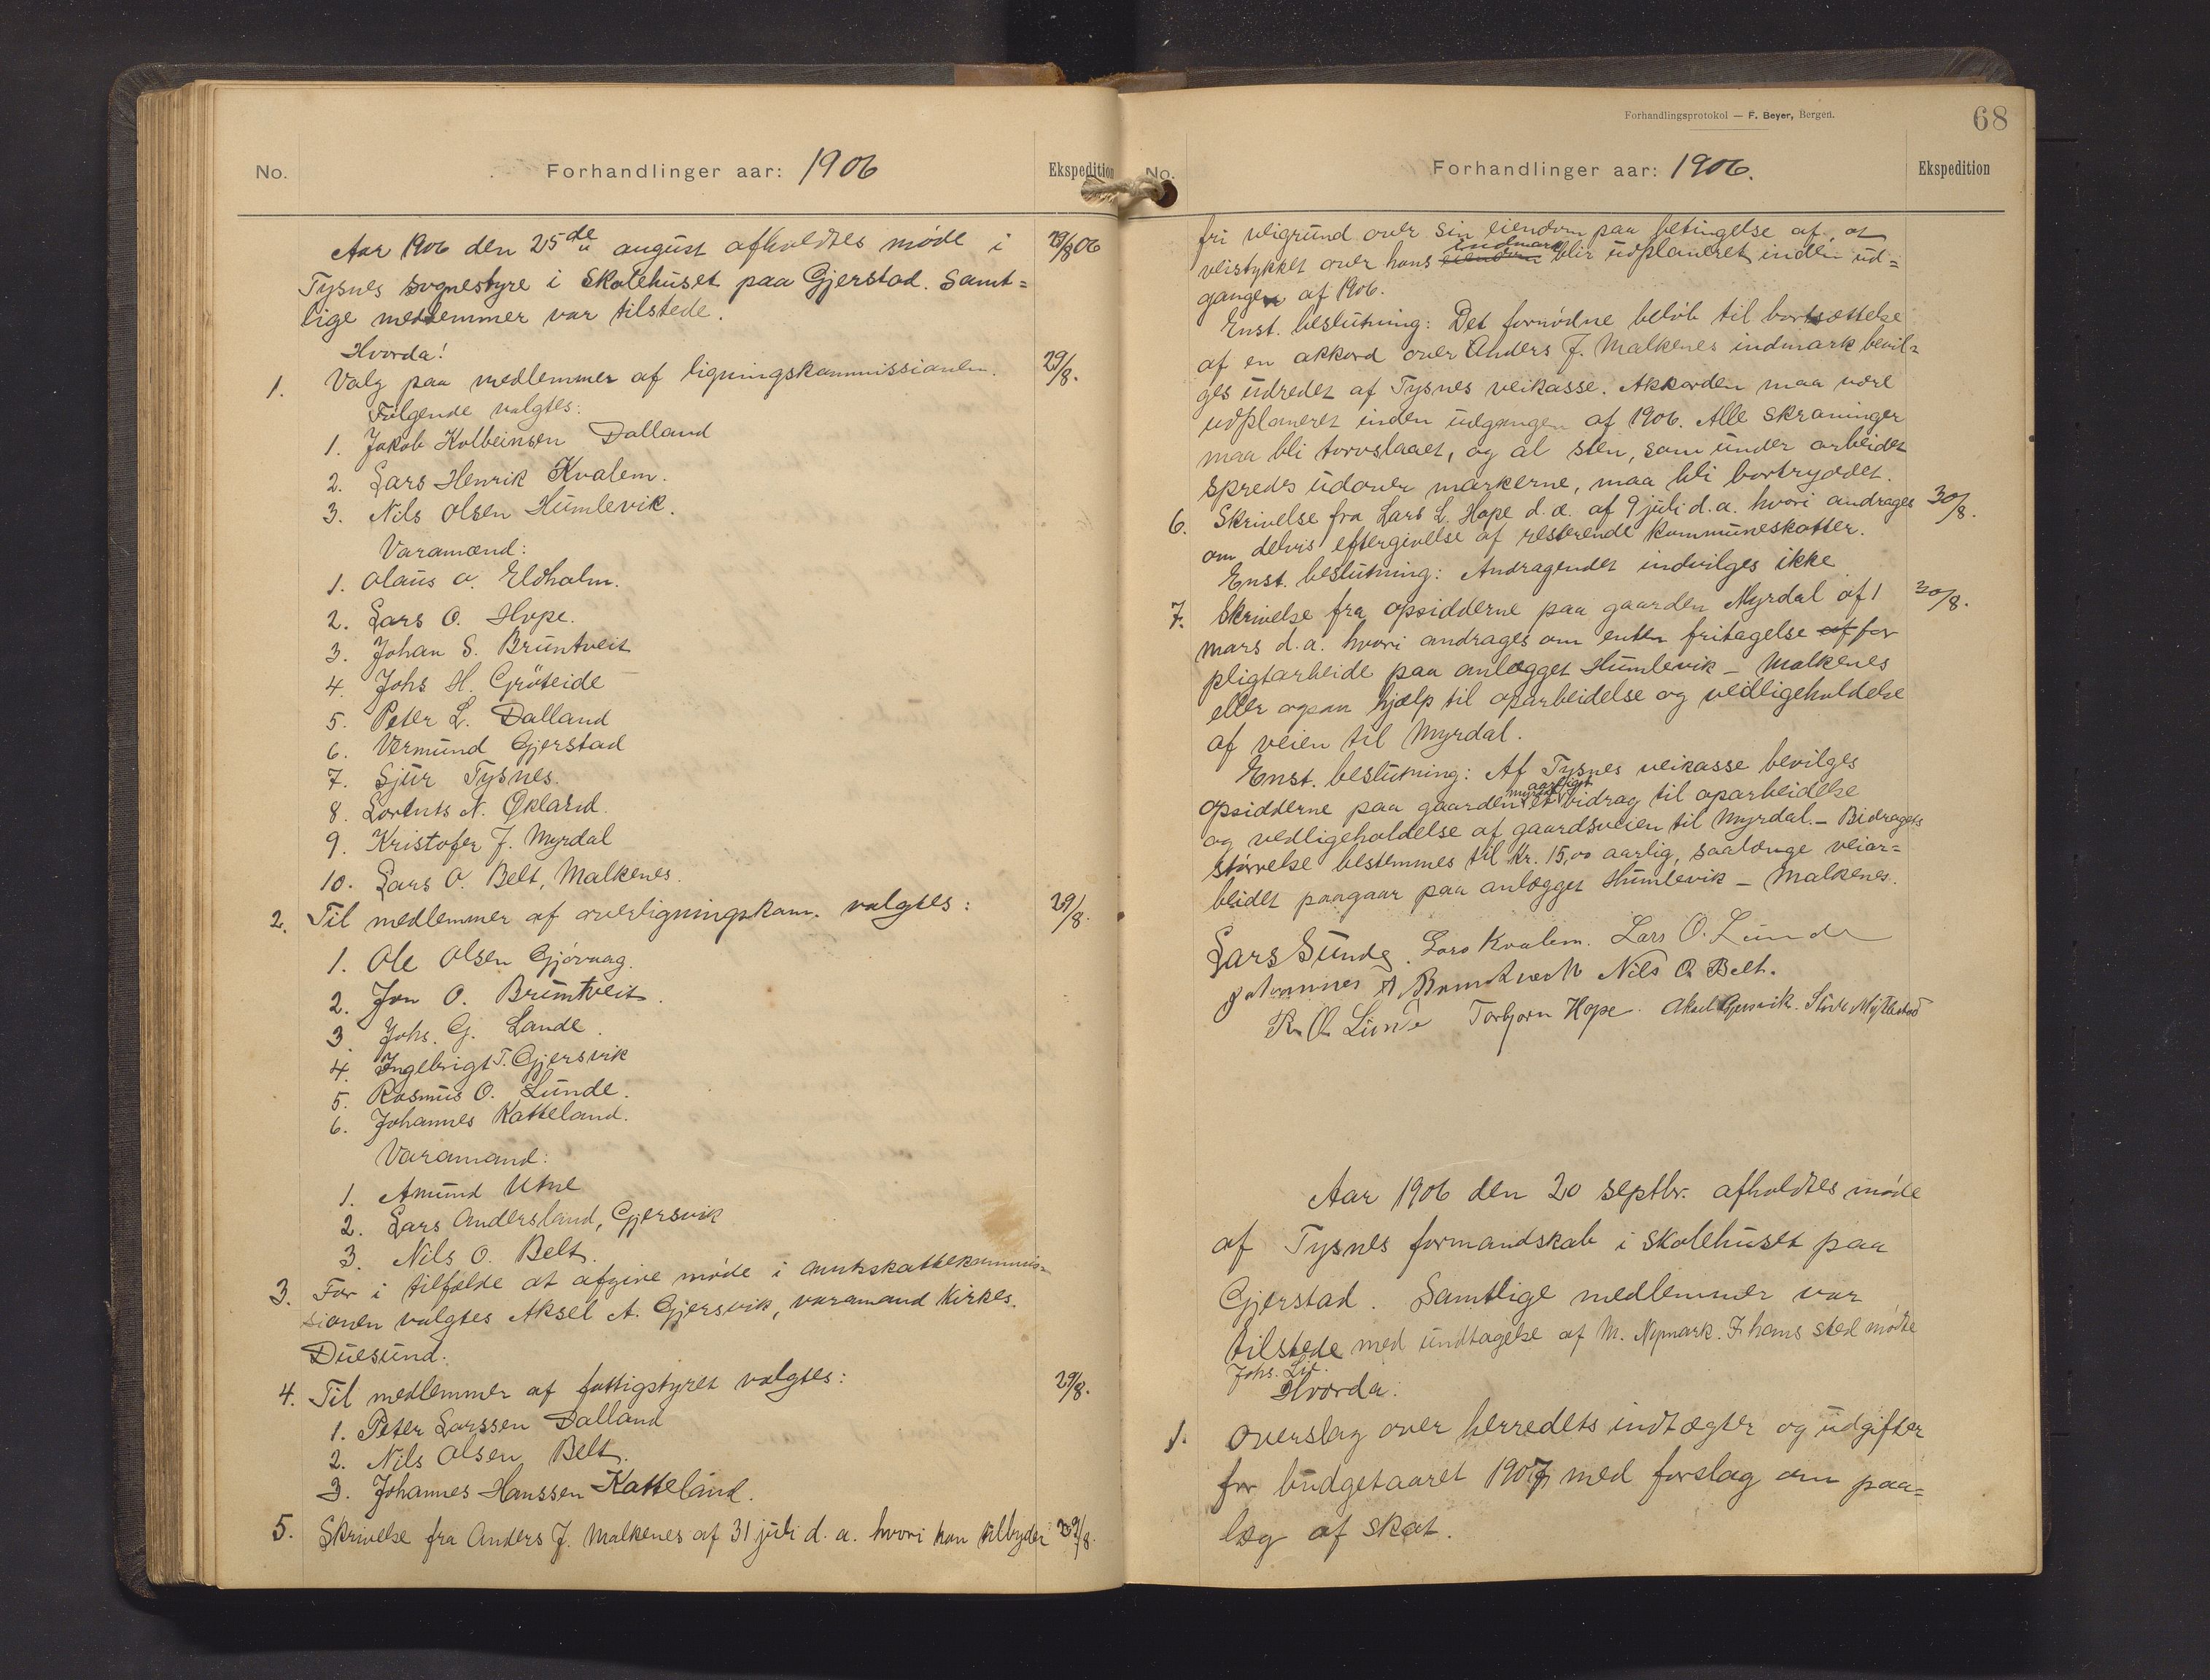 No.
Forhandlinger aar: 1906
Ekspedition
Aar 1906 den 25de august afholdtes møde i
29/8 06
Tysnes sognestyre i Skolehuset paa Gjerstad. Samt=
lige medlemmer var tilstede.
Hvorda!
1. Valg paa medlemmer af ligningskommissionen.
29/8.
Følgende valgtes:
1. Jakob Kolbeinsen Dalland
2. Lars Henrik Kvalem.
3. Nils Olsen Humlevik.
Varamænd:
1. Olaus O. Eldholm.
2. Lars O. Hope.
3. Johan S. Bruntveit
4. Johs H. Grøteide
5. Peter L. Dalland
6. Vermund Gjerstad
7. Sjur Tysnes.
8. Lorents N. Økland.
9. Kristofer J. Myrdal
10. Lars O. Belt, Malkenes.
2. Til medlemmer af overligningskom. valgtes:
29/8.
1. Ole Olsen Gjøvaag.
2. Jon O. Bruntveit.
3. Johs. G. Lande.
4. Ingebrigt T. Gjersvik
5. Rasmus O. Lunde.
6. Johannes Katteland.
Varamænd:
1. Amund Utne
2. Lars Andersland, Gjersvik
3. Nils O. Belt.
3. For i tilfælde at afgive møde i amtsskattekommis=
sionen valgtes Aksel A. Gjersvik, varamand Kirkes.
Duesund.
4. Til medlemmer af fattigstyret valgtes:
29/8.
1. Peter Larssen Dalland
2. Nils Olsen Belt.
3. Johannes Hanssen Katteland.
5. Skrivelse fra Anders J. Malkenes af 31 juli d. a. hvori han tilbyder
29/8.
Forhandlingsprotokol — F. Beyer, Bergen.
68
No.
Forhandlinger aar: 1906.
Ekspedition
fri veigrund over sin eiendom paa betingelse af, at
indmark
veistykket over hans eiendom blir udplaneret inden ud=
gangen af 1906.
Enst. beslutning: Det fornødne beløb til bortsættelse
af en akkord over Anders J. Malkenes indmark bevil=
ges udredet af Tysnes veikasse. Akkorden maa være
udplaneret inden udgangen af 1906. Alle skraaninger
maa bli torvslaaet, og al sten, som under arbeidet
spredes udover markerne, maa bli bortryddet.
6. Skrivelse fra Lars L. Hope d. æ. af 9 juli d. a. hvori andrages
30/8.
om delvis eftergivelse af resterende kommuneskatter.
Enst. beslutning: Andragendet indvilges ikke
7. Skrivelse fra opsidderne paa gaarden Myrdal af 1
30/8.
mars d. a. hvori andrages om enten fritagelse af for
pligtarbeide paa anlægget Humlevik – Malkenes
eller ogsaa hjælp til oparbeidelse og vedligeholdelse
af veien til Myrdal.
Enst. beslutning: Af Tysnes veikasse bevilges
Myrdal aarligt
opsidderne paa gaarden et bidrag til oparbeidelse
og vedligeholdelse af gaardsveien til Myrdal. – Bidragets
størrelse bestemmes til kr. 15,00 aarlig, saalænge veiar=
beidet paagaar paa anlægget Humlevik – Malkenes.
Lars Sunde. Lars Kvalem. Lars O. Lunde
Johannes A Bruntveit Nils O Belt.
R. O. Lunde Torbjørn Hope. Aksel Gjersvik.
Aar 1906 den 20 septbr. afholdtes møde
af Tysnes formandskab i skolehuset paa
Gjerstad. Samtlige medlemmer var
tilstede med undtagelse af M. Nymark. I hans sted mødte
Johs. Lie.
Hvorda:
1. Overslag over herredets indtægter og udgifter
for budgetaaret 1907 med forslag om paa=
læg af skat.